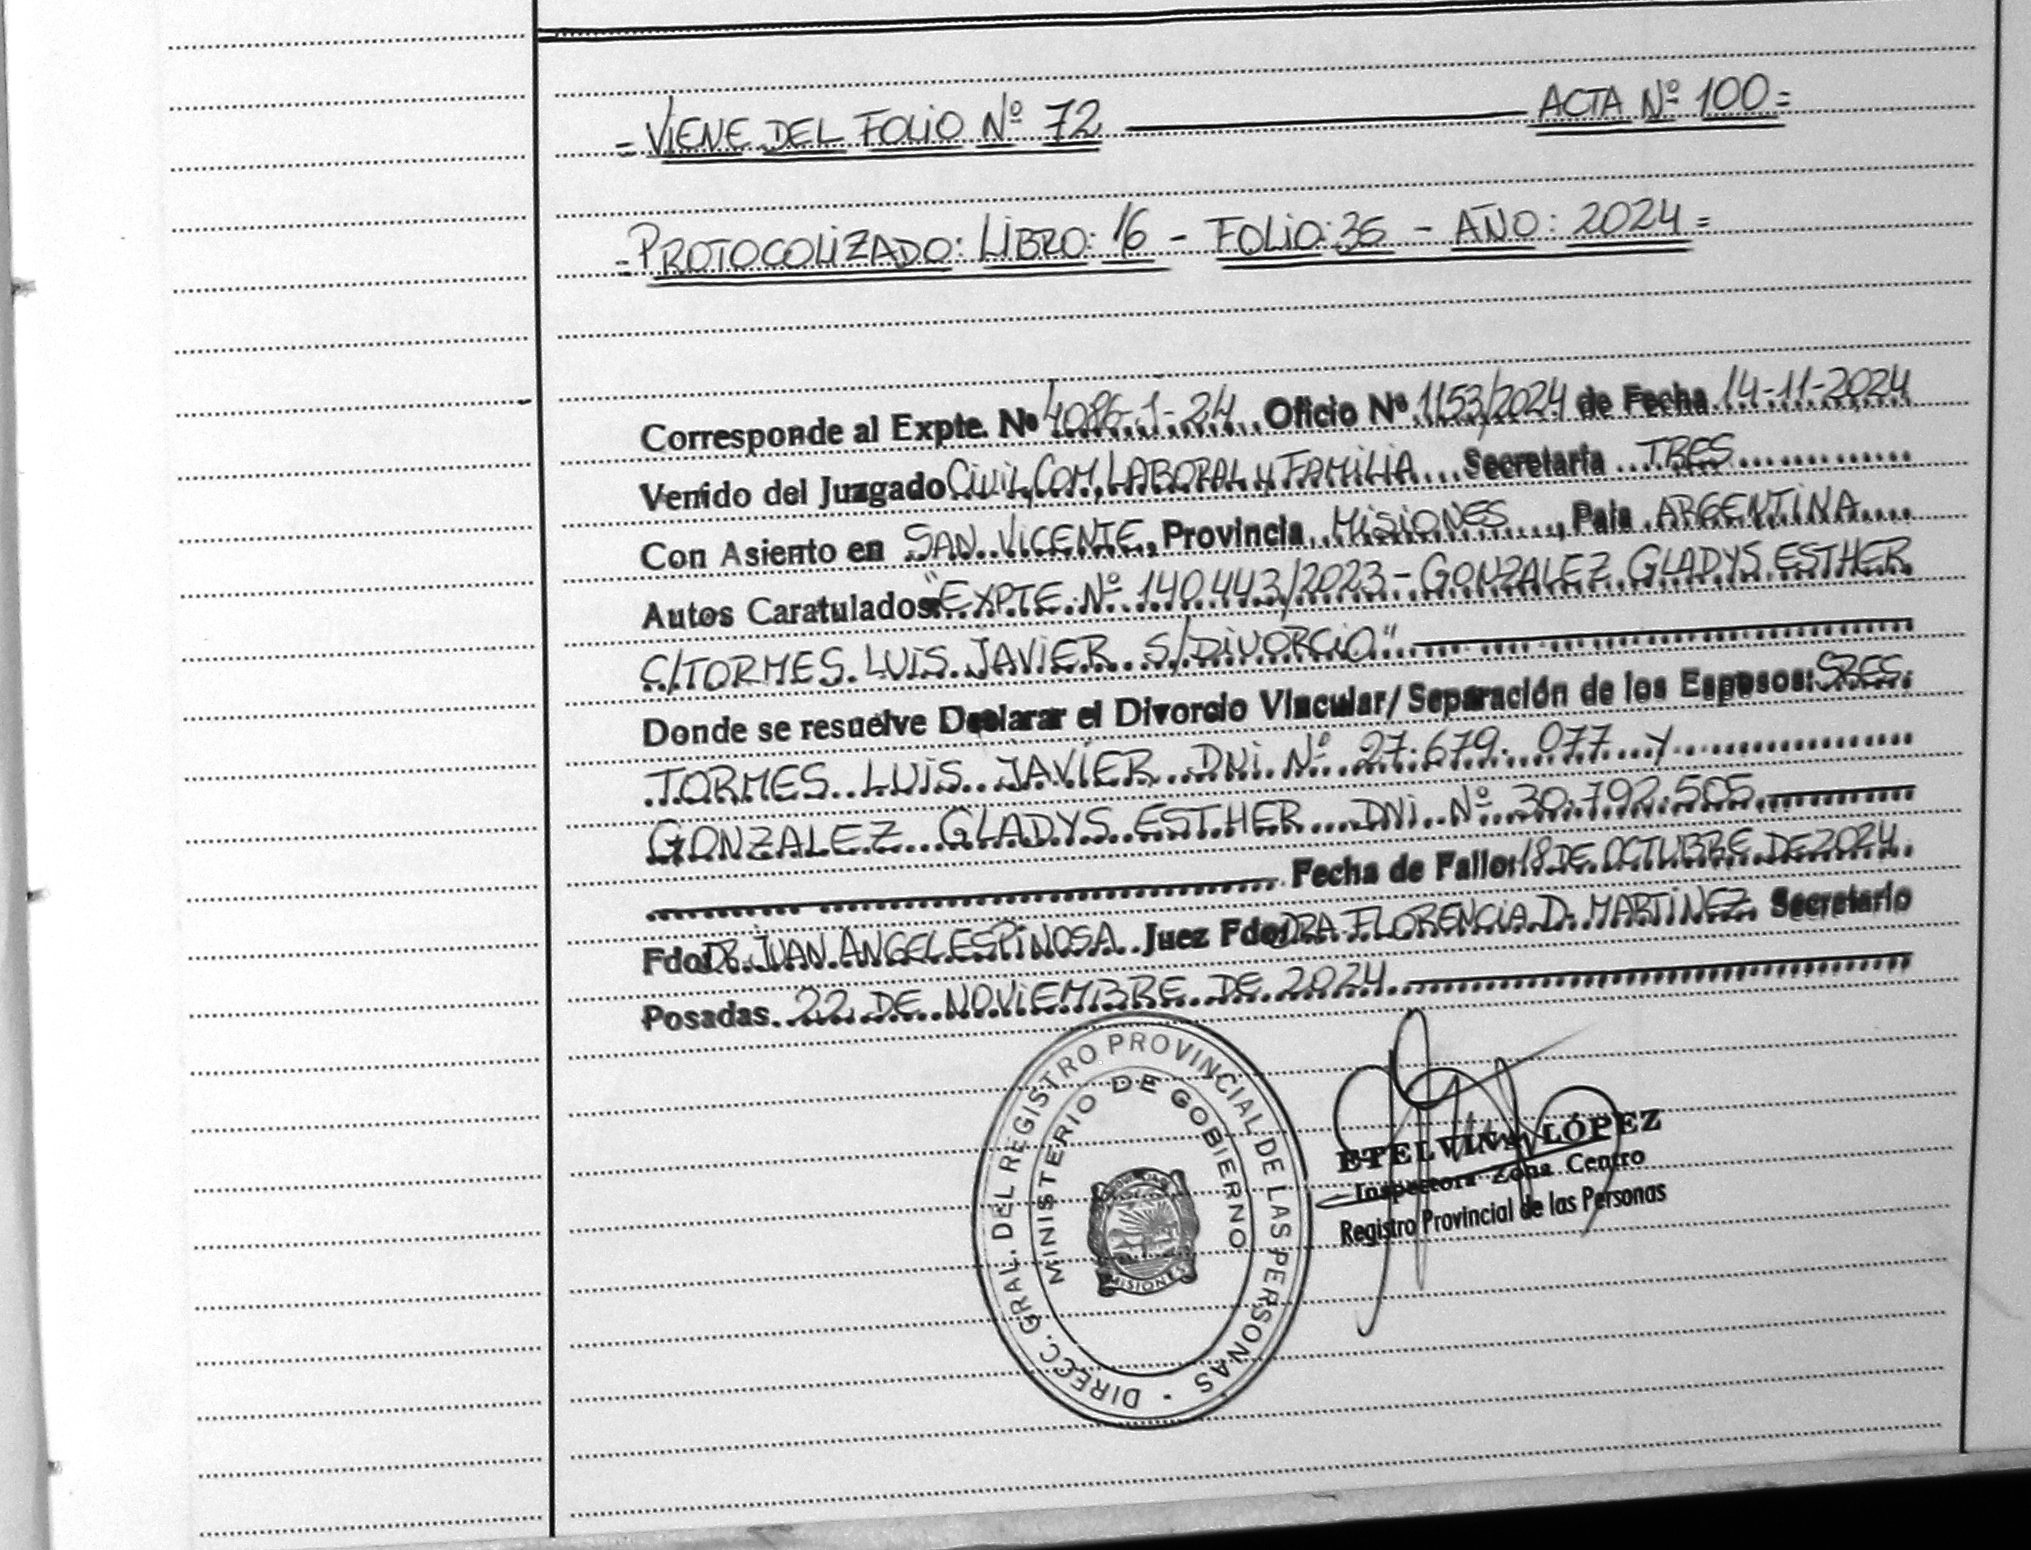 = VIENE DEL FOLIO Nº 72 ———— ACTA Nº 100 =
= PROTOCOLIZADO: LIBRO: 16 - FOLIO: 36 - AÑO: 2024 =
Corresponde al Expte. Nº 4086-1-24 Oficio Nº 1153/2024 de Fecha 14-11-2024
Venido del Juzgado CIVIL, COM, LABORAL y FAMILIA Secretaria TRES
Con Asiento en SAN VICENTE, Provincia MISIONES, Pais ARGENTINA
Autos Caratulados: "EXPTE. Nº 140.443/2023 - GONZALEZ GLADYS ESTHER
C/TORMES LUIS JAVIER S/DIVORCIO"
Donde se resuelve Declarar el Divorcio Vincular/Separación de los Esposos: SRES.
TORMES LUIS JAVIER DNI. Nº 27.679.077 y
GONZALEZ GLADYS ESTHER DNI. Nº 30.792.505
Fecha de Fallo: 18 DE OCTUBRE DE 2024.
Fdo: DR. JUAN ANGEL ESPINOSA Juez Fdo: DRA FLORENCIA D. MARTINEZ Secretario
Posadas 22 DE NOVIEMBRE DE 2024
DIRECC. GRAL. DEL REGISTRO PROVINCIAL DE LAS PERSONAS
MINISTERIO DE GOBIERNO
MISIONES
ETELVINA LÓPEZ
Inspectora Zona Centro
Registro Provincial de las Personas